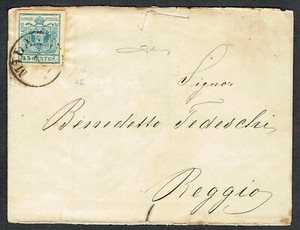 Signor
Benedetto Tedeschi
Reggio